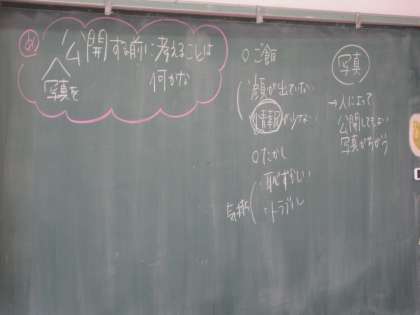 め
公開する前に考えることは
写真を
何かな
写真
→人によって
公開してもよい
写真がちがう
○ご飯
顔が出ていない
情報が少ない
○たかし
・恥ずかしい
・トラブル
気持ち